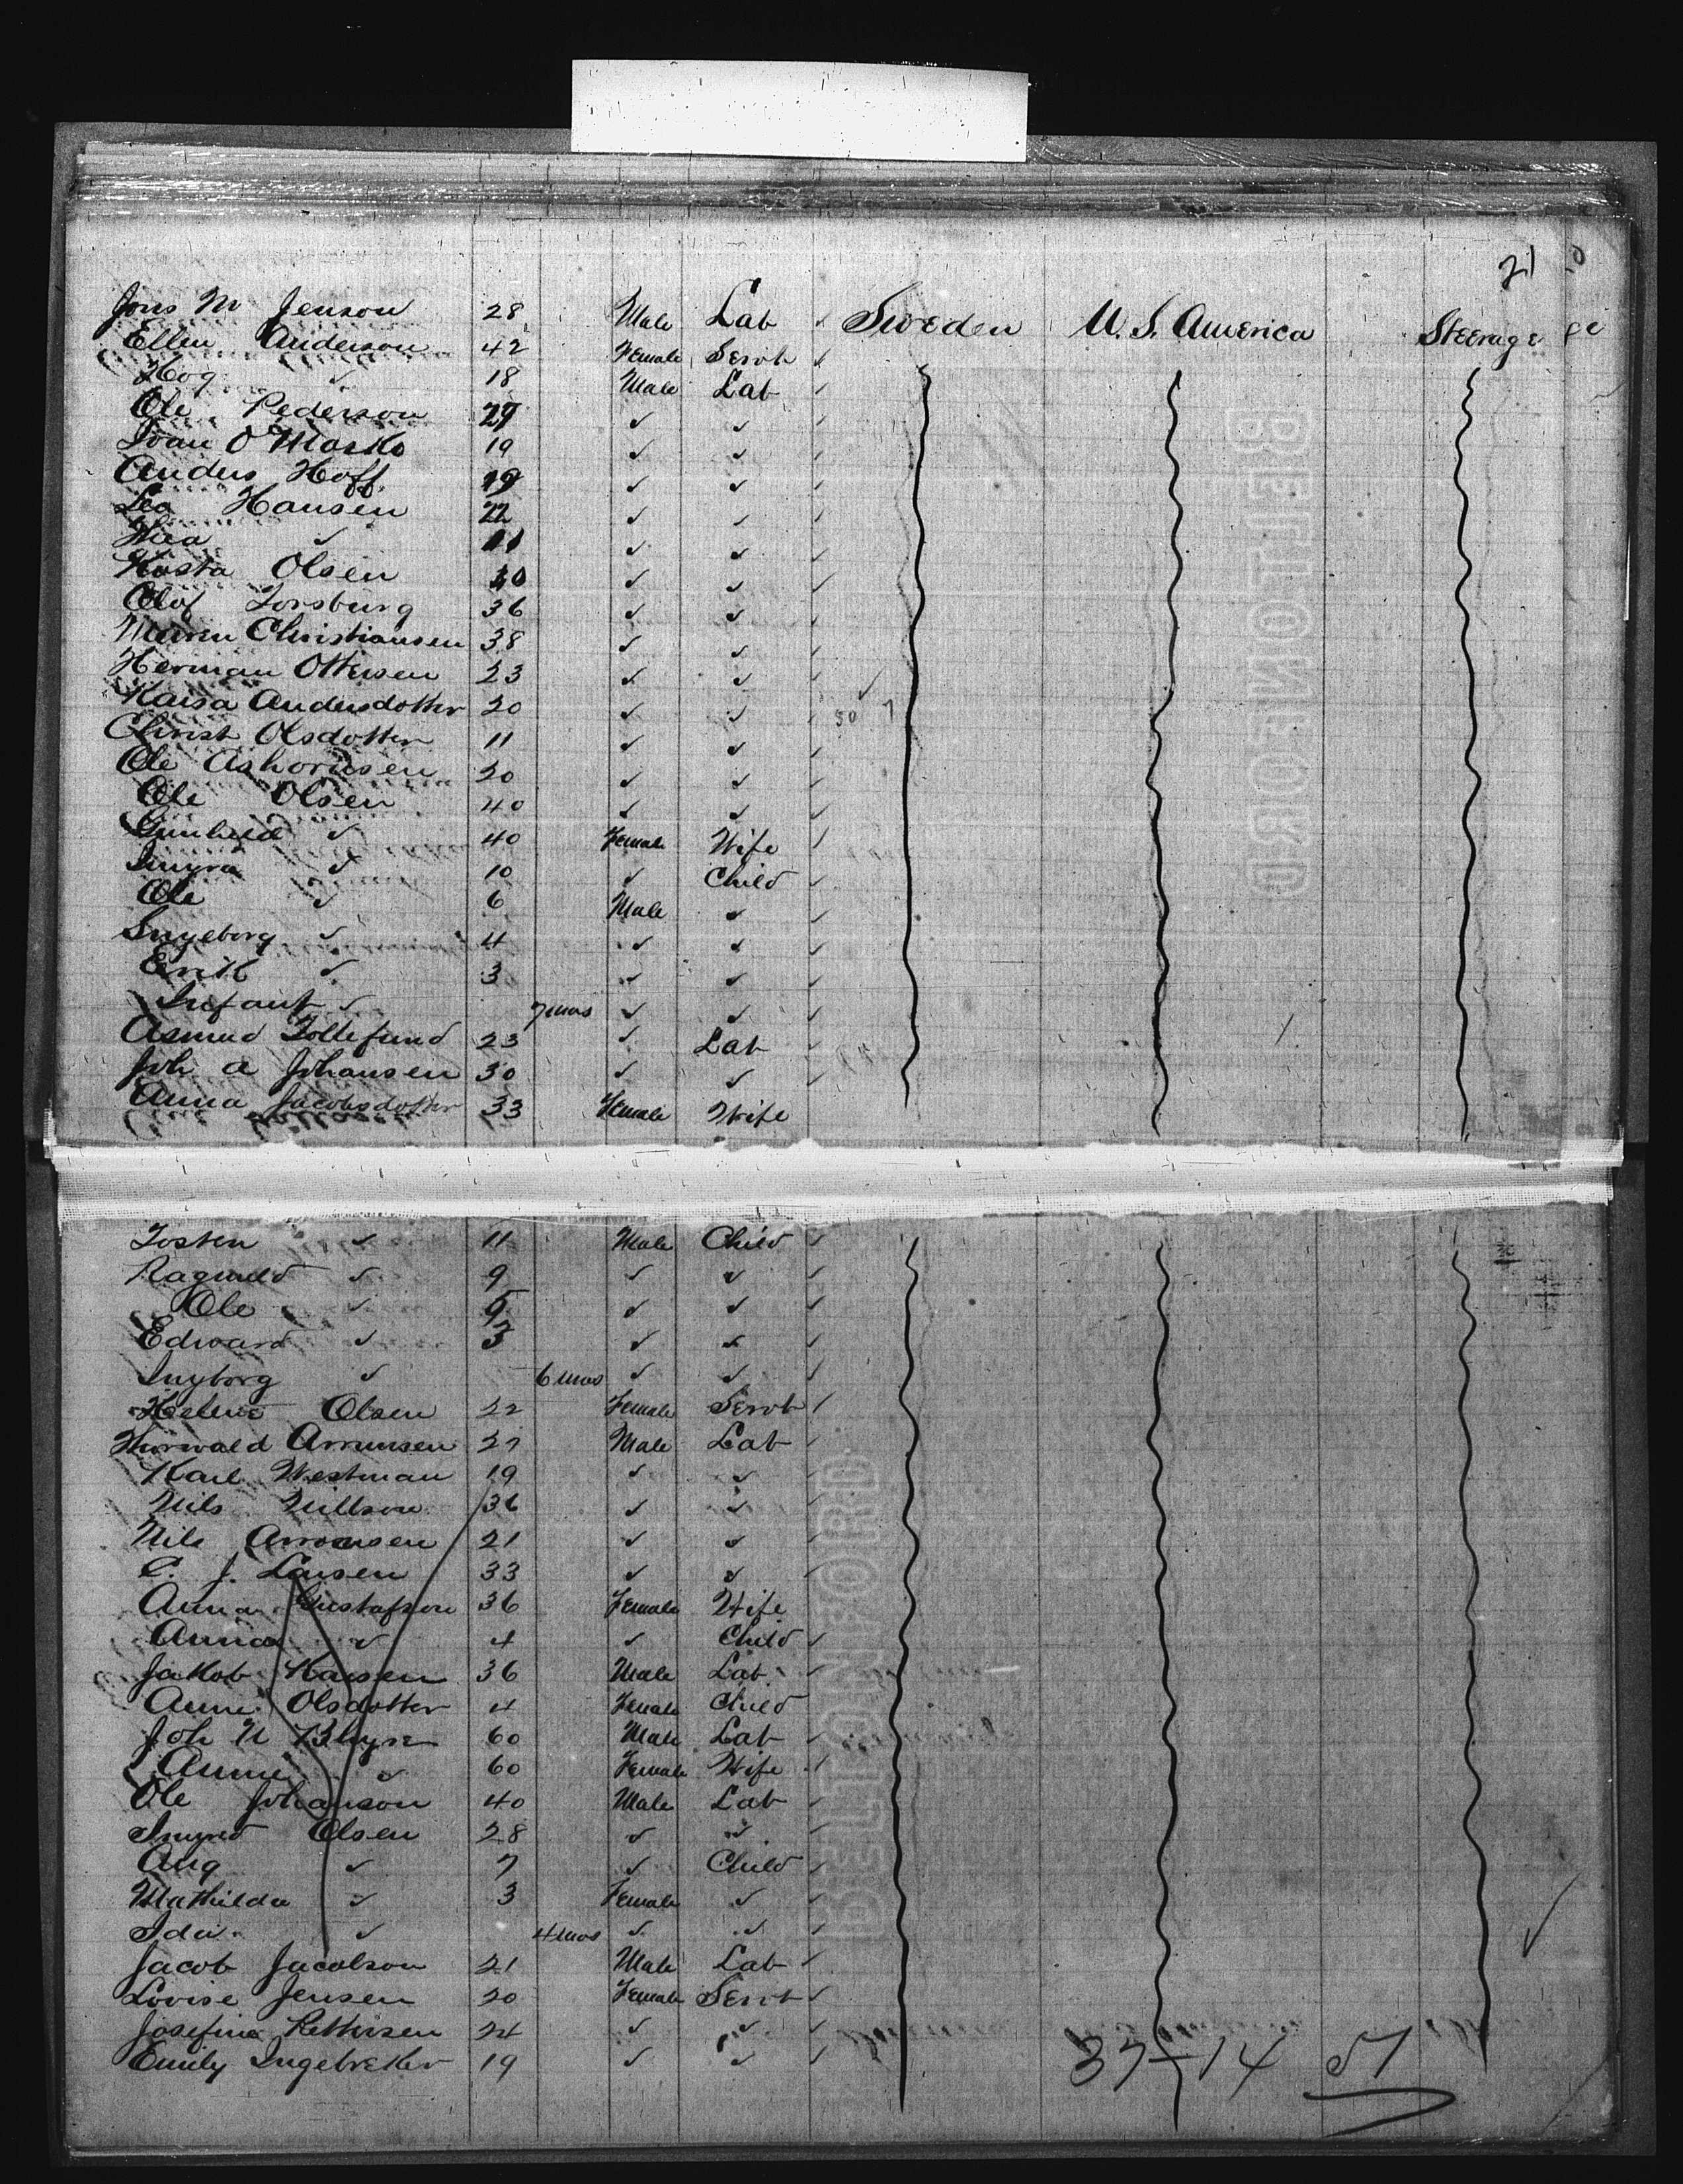 21
Jons M Jenson 28 Male Lab ✓ Sweden U.S. America Steerage
Ellen Anderson 42 Female Servt ✓
Hog ✓ 18 Male Lab ✓
Ole Pederson 27 ✓ ✓ ✓
Ivan O Masko 19 ✓ ✓ ✓
Anders Hoff 19 ✓ ✓ ✓
Leo Hansen 22 ✓ ✓ ✓
Thea ✓ 11 ✓ ✓ ✓
Kosta Olsen 30 ✓ ✓ ✓
Olof Forsburg 36 ✓ ✓ ✓
Maren Christiansen 38 ✓ ✓ ✓
Herman Ottersen 23 ✓ ✓ ✓
Kaisa Andersdotter 20 ✓ ✓ ✓
Christ Olsdotter 11 ✓ ✓ ✓
Ole Ashornsen 20 ✓ ✓ ✓
Ole Olsen 40 ✓ ✓ ✓
Gunhild ✓ 40 Female Wife ✓
✓ 10 ✓ Child ✓
Ole ✓ 6 Male ✓ ✓
Ingeborg ✓ 4 ✓ ✓ ✓
Erik ✓ 3 ✓ ✓ ✓
Infant ✓ 7 mos ✓ ✓ ✓
Asmud Tollefund 23 ✓ Lab ✓
Joh A Johansen 30 ✓ ✓ ✓
Anna Jacobsdotter 33 Female Wife
Tosten ✓ 11 Male Child ✓
Ragnield ✓ 9 ✓ ✓ ✓
Ole ✓ 5 ✓ ✓ ✓
Edward ✓ 3 ✓ ✓ ✓
Ingborg ✓ 6 mos ✓ ✓ ✓
Helene Olsen 22 Female Servt ✓
Thorwald Amunsen 27 Male Lab ✓
Karl Westman 19 ✓ ✓ ✓
Nils Nillson 36 ✓ ✓
Nils Arronsen 21 ✓ ✓ ✓
C. J. Larsen 33 ✓ ✓ ✓
Anna Gustafson 36 Female Wife
Anna ✓ 4 ✓ Child ✓
Jakob Hansen 36 Male Lab ✓
Anne Olsdotter 4 Female Child
Joh N 60 Male Lab ✓
Anne ✓ 60 Female Wife ✓
Ole Johanson 40 Male Lab ✓
Ingred Olsen 28 ✓ ✓ ✓
Aug ✓ 7 ✓ Child ✓
Mathilda ✓ 3 Female ✓ ✓
Ida ✓ 4 mos ✓ ✓ ✓
Jacob Jacobson 21 Male Lab ✓
Lovise Jensen 20 Female Servt ✓
Josefine Pettersen 24 ✓ ✓ ✓
Emily Ingebreker 19 ✓ ✓ ✓
37-14 51
BELTON FORD
BELTON FORD